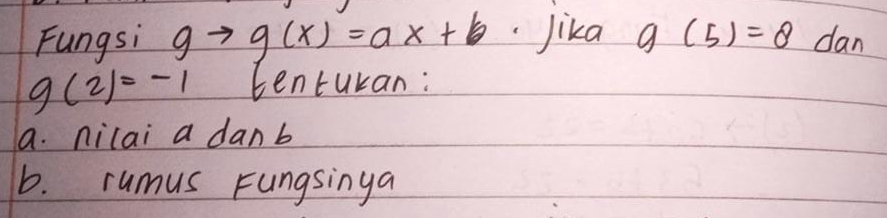 Fungsi g → g(x) = ax + b. Jika g (5) = 8 dan
g(2) = -1 tentukan:
a. nilai a dan b
b. rumus Fungsinya